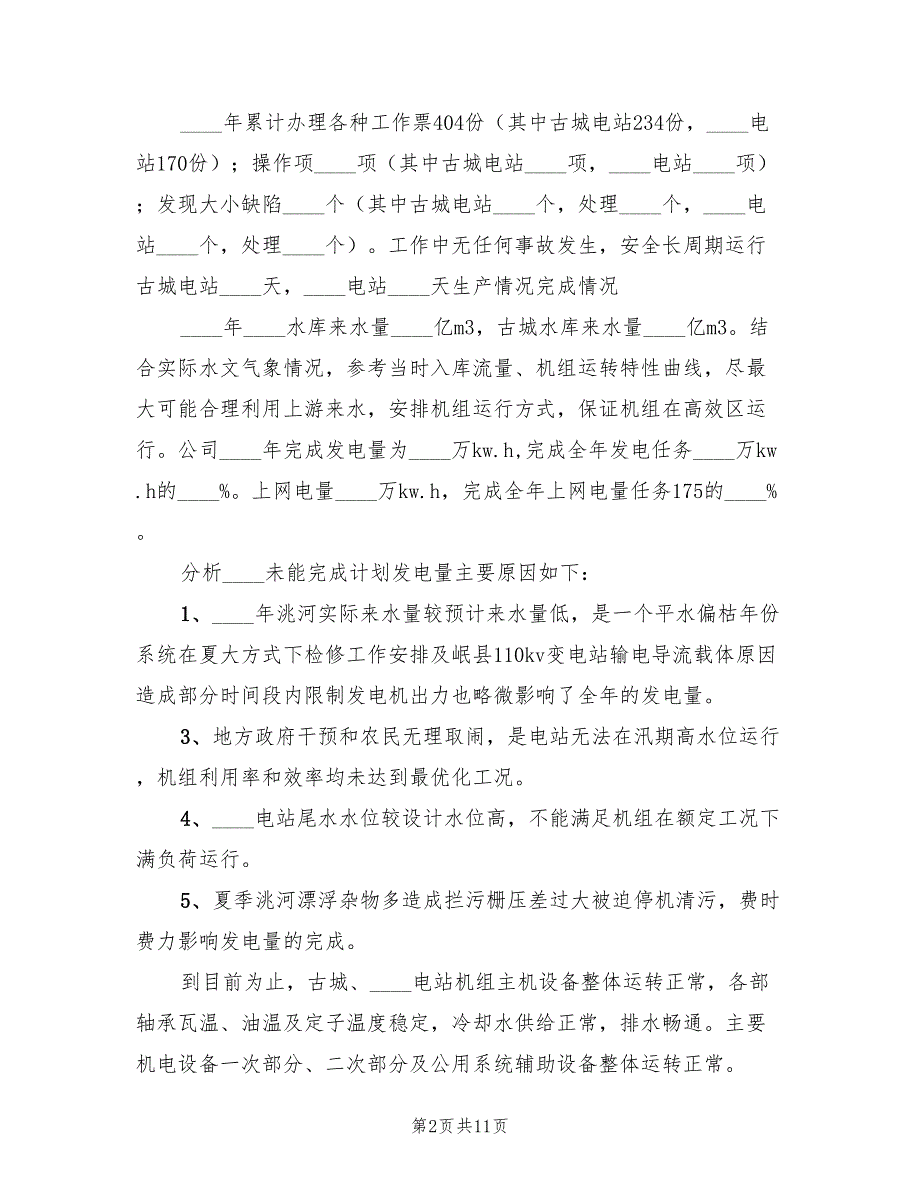 ____年累计办理各种工作票404份（其中古城电站234份，____电
站170份）；操作项____项（其中古城电站____项，____电站____项）
；发现大小缺陷____个（其中古城电站____个，处理____个，____电
站____个，处理____个）。工作中无任何事故发生，安全长周期运行
古城电站____天，____电站____天生产情况完成情况
____年____水库来水量____亿m3，古城水库来水量____亿m3。结
合实际水文气象情况，参考当时入库流量、机组运转特性曲线，尽最
大可能合理利用上游来水，安排机组运行方式，保证机组在高效区运
行。公司____年完成发电量为____万kw.h,完成全年发电任务____万kw
.h的____%。上网电量____万kw.h，完成全年上网电量任务175的____%
。
分析____未能完成计划发电量主要原因如下：
1、____年洮河实际来水量较预计来水量低，是一个平水偏枯年份
系统在夏大方式下检修工作安排及岷县110kv变电站输电导流载体原因
造成部分时间段内限制发电机出力也略微影响了全年的发电量。
3、地方政府干预和农民无理取闹，是电站无法在汛期高水位运行
，机组利用率和效率均未达到最优化工况。
4、____电站尾水水位较设计水位高，不能满足机组在额定工况下
满负荷运行。
5、夏季洮河漂浮杂物多造成拦污栅压差过大被迫停机清污，费时
费力影响发电量的完成。
到目前为止，古城、____电站机组主机设备整体运转正常，各部
轴承瓦温、油温及定子温度稳定，冷却水供给正常，排水畅通。主要
机电设备一次部分、二次部分及公用系统辅助设备整体运转正常。
第2页共11页